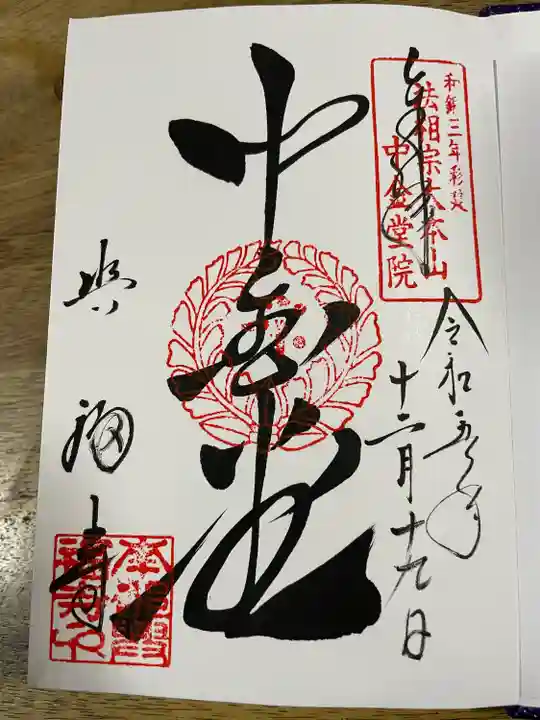 奉拝
和銅三年彩筵
法相宗大本山
中金堂院
令和五年
十二月十九日
中金堂
興福寺